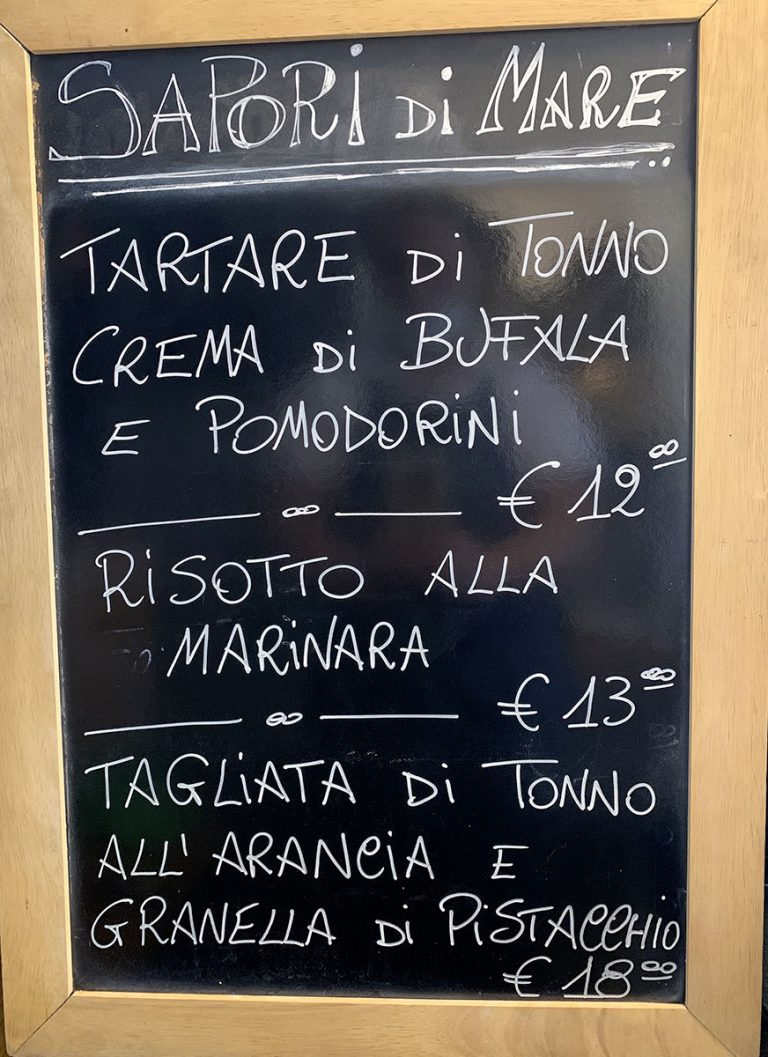 SAPORi Di MARE
TARTARE Di TONNO
CREMA Di BUFALA
E POMODORiNi
€ 12.00
RiSOTTO ALLA
MARiNARA
€ 13.00
TAGLiATA Di TONNO
ALL' ARANCiA E
GRANELLA Di PiSTACCHiO
€ 18.00